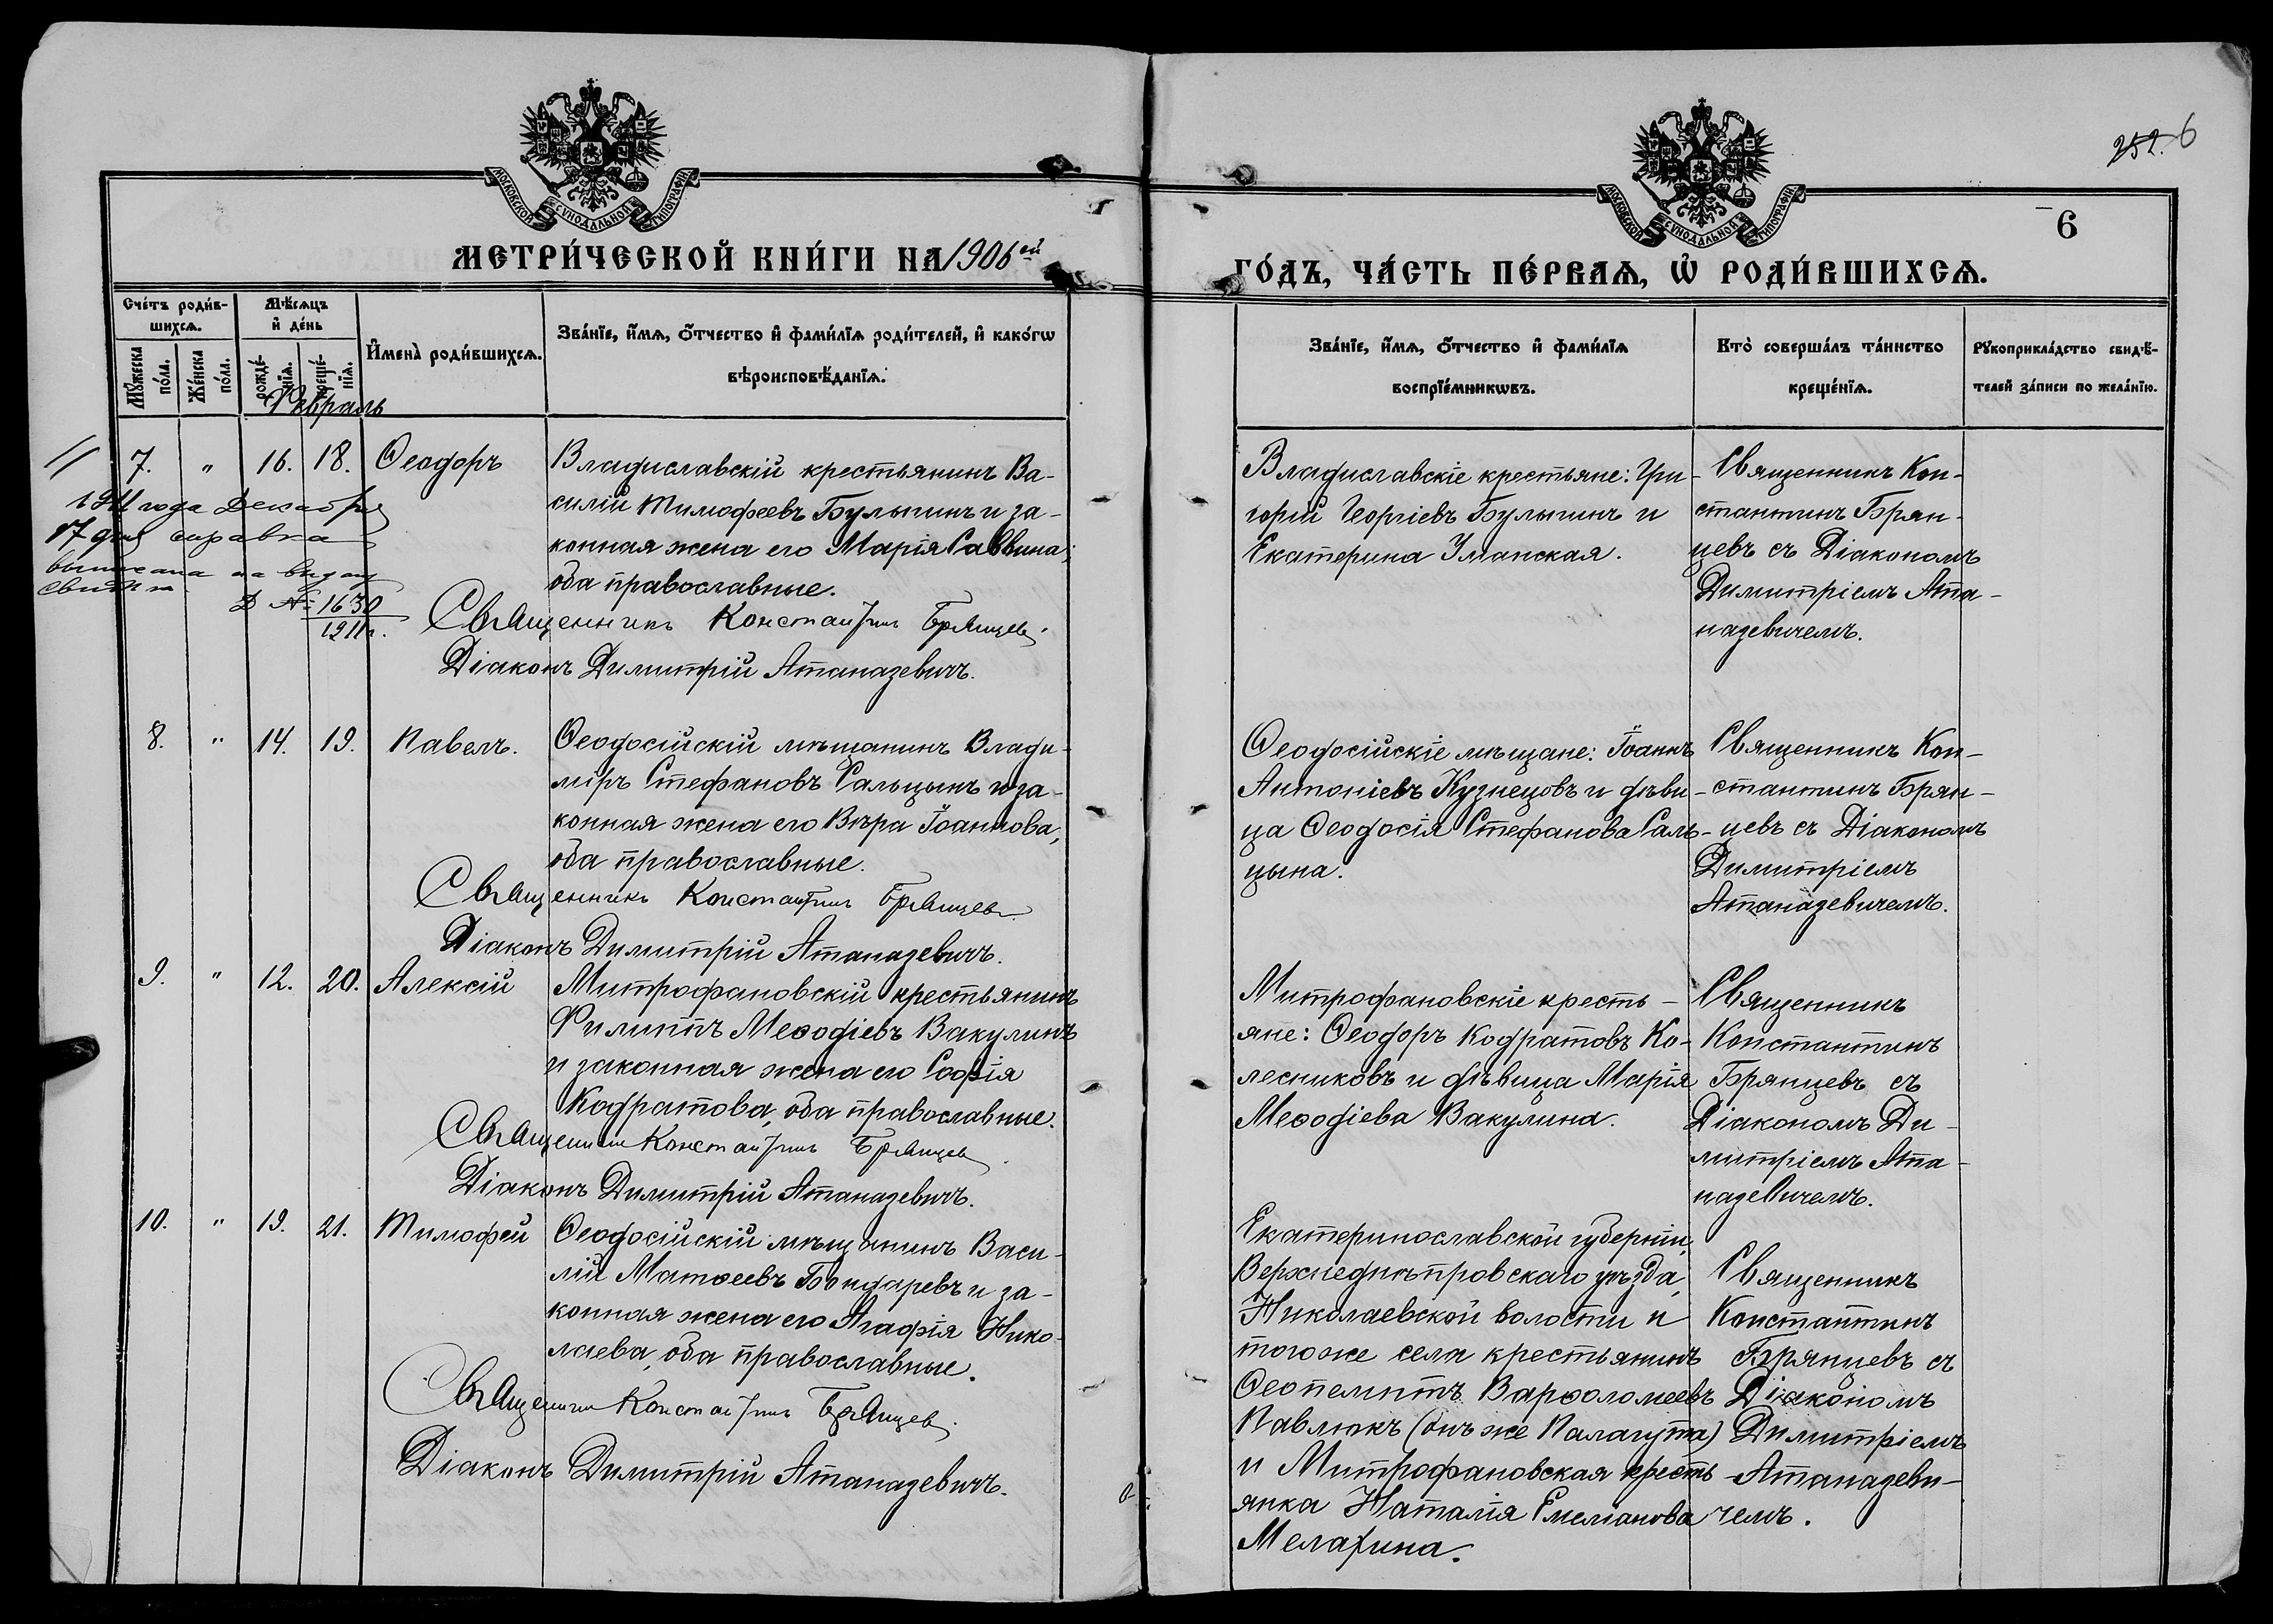 252. 6
МОСКОВСКОЙ СѴНОДАЛЬНОЙ ТИПОГРАФІИ
МОСКОВСКОЙ СѴНОДАЛЬНОЙ ТИПОГРАФІИ
6
МЕТРИ́ЧЕСКОЙ КНИ́ГИ НА 1906ой
ГО́ДЪ, ЧА́СТЬ ПЕ́РВАѦ, Ѡ҆ РОДИ́ВШИХСѦ.
Сче́тъ роди́в-
шихсѧ.
Мꙋ́жеска по́ла.
Же́нска по́ла.
Мѣ́сѧцъ
и҆ де́нь
рожде́нїѧ.
креще́нїѧ.
И҆мена̀ роди́вшихсѧ.
Зва́нїе, и҆́мѧ, ѻ҆́тчество и҆ фами́лїѧ роди́телей, и҆ како́гѡ
вѣроисповѣ́данїѧ.
Зва́нїе, и҆́мѧ, ѻ҆́тчество и҆ фами́лїѧ
воспрїе́мникѡвъ.
Кто̀ соверша́лъ та́инство
креще́нїѧ.
Рꙋкоприкла́дство свидѣ́-
телей за́писи по жела́нїю.
Февраль
7. " 16. 18. Ѳеодоръ
Владиславскій крестьянинъ Ва-
силій Тимофеевъ Булыгинъ и за-
конная жена его Марія Саввина;
оба православные.
Священникъ Константинъ Брянцев.
Діаконъ Димитрій Атаназевичъ.
1911 года Декабря
17 дня справка
выписана на выдачу
свид
Д № 1630
1911 г.
Владиславскіе крестьяне: Гри-
горій Георгіевъ Булыгинъ и
Екатерина Уманская.
Священникъ Кон-
стантинъ Брян-
цевъ съ Діакономъ
Димитріемъ Ата-
назевичемъ.
8. " 14. 19. Павелъ.
Ѳеодосійскій мѣщанинъ Влади-
міръ Стефановъ Сальцынъ и за-
конная жена его Вѣра Іоаннова,
оба православные.
Священникъ Константинъ Брянцев
Діаконъ Димитрій Атаназевичъ.
Ѳеодосійскіе мѣщане: Іоаннъ
Антоніевъ Кузнецовъ и дѣви-
ца Ѳеодосія Стефанова Саль-
цына.
Священникъ Кон-
стантинъ Брян-
цевъ съ Діакономъ
Димитріемъ
Атаназевичемъ.
9. " 12. 20. Алексій
Митрофановскій крестьянинъ
Филиппъ Меѳодіевъ Вакулинъ
и законная жена его Софія
Кодратова, оба православные.
Священник Константинъ Брянцев.
Діаконъ Димитрій Атаназевичъ.
Митрофановскіе кресть-
яне: Ѳеодоръ Кодратовъ Ко-
лесниковъ и дѣвица Марія
Меѳодіева Вакулина.
Священникъ
Константинъ
Брянцевъ съ
Діакономъ Ди-
митріемъ Ата-
назевичемъ.
10. " 19. 21. Тимофей
Ѳеодосійскій мѣщанинъ Васи-
лій Матѳеевъ Бондаревъ и за-
конная жена его Агафія Нико-
лаева, оба православные.
Священник Константинъ Брянцев.
Діаконъ Димитрій Атаназевичъ.
Екатеринославской губерніи,
Верхнеднѣпровскаго уѣзда,
Николаевской волости и
того же села крестьянинъ
Ѳеопемптъ Варѳоломеевъ
Павлюкъ (онъ же Палагута)
и Митрофановская кресть-
янка Наталія Емеліанова
Священникъ
Константинъ
Брянцевъ съ
Діакономъ
Димитріемъ
Атаназеви-
чемъ.